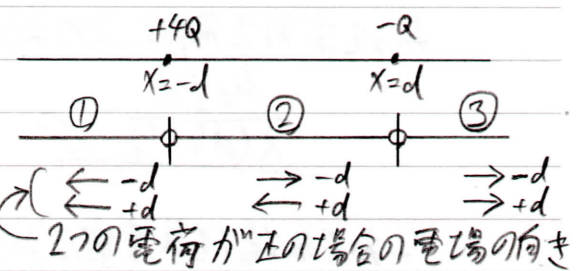 +4Q -Q
x=-d x=d
① ② ③
← -d → -d → -d
← +d ← +d → +d
2つの電荷が正の場合の電場の向き